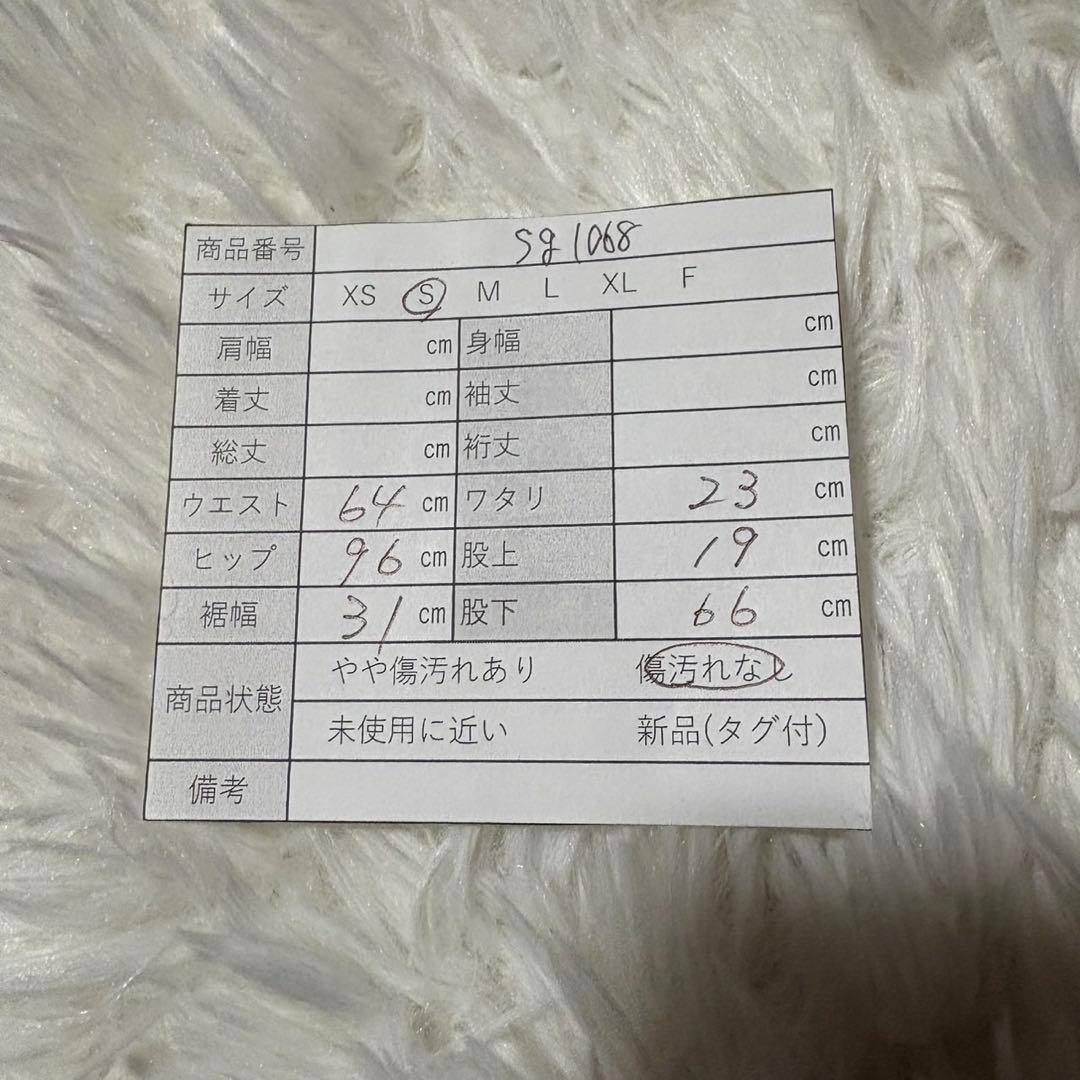 商品番号 sg1068
サイズ XS S M L XL F
肩幅 cm 身幅 cm
着丈 cm 袖丈 cm
総丈 cm 裄丈 cm
ウエスト 64 cm ワタリ 23 cm
ヒップ 96 cm 股上 19 cm
裾幅 31 cm 股下 66 cm
商品状態 やや傷汚れあり 傷汚れなし
未使用に近い 新品(タグ付)
備考